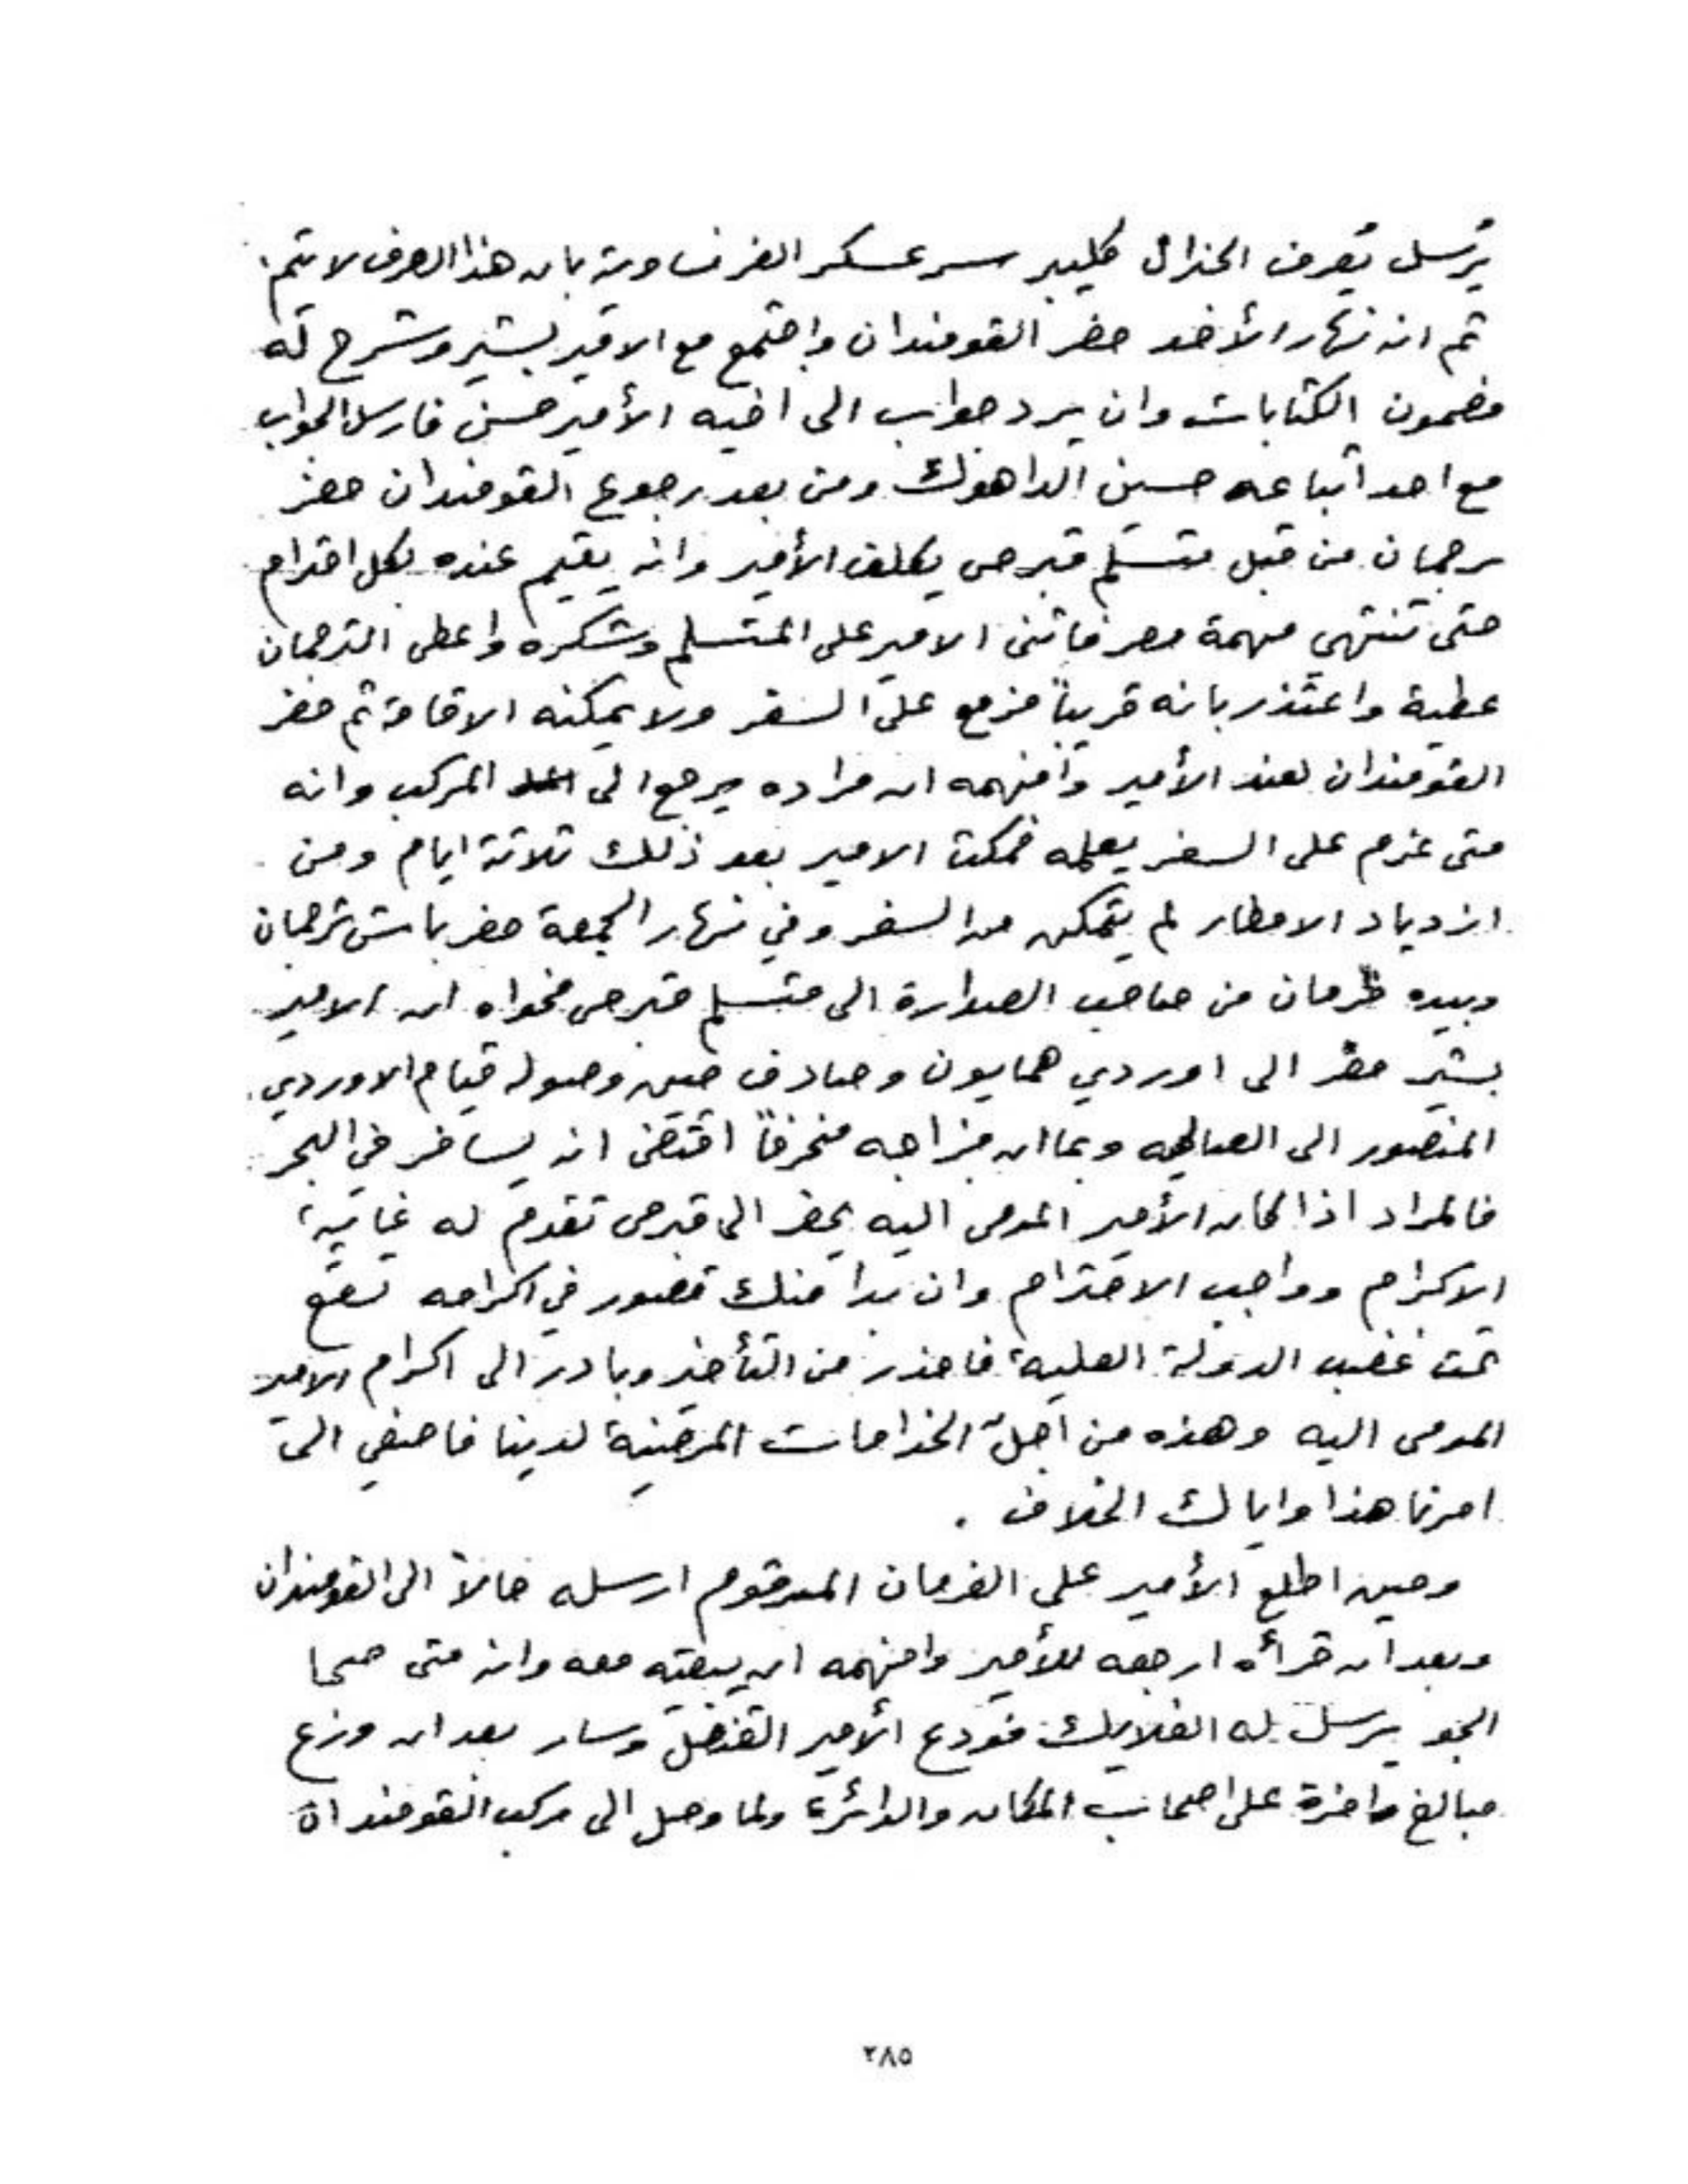 يرسل يعرف الجنرال كليبر سر عسكر الفرنساوية بان هذا الصرف لا يتم.
ثم انه نهار الأحد حضر القومندان واجتمع مع الامير بشير وشرح له
مضمون الكتابات وان يرد جواب الى اخيه الأمير حسن فارسل الجواب
مع احد اتباعه حسين الداهوك ومن بعد رجوع القومندان حضر
ترجمان من قبل متسلم قبرص يكلف الأمير وانه يقيم عنده بكل احترام
حتى تنتهي مهمة مصر فاثنى الامير على المتسلم وشكره واعطى الترجمان
عطية واعتذر بانه قريباً مزمع على السفر ولا يمكنه الاقامة ثم حضر
القومندان لعند الأمير وافهمه ان مراده يرجع الى المركب وانه
متى عزم على السفر يعلمه فمكث الامير بعد ذلك ثلاثة ايام ومن
ازدياد الامطار لم يتمكن من السفر وفي نهار الجمعة حضر باش ترجمان
وبيده فرمان من صاحب الصدارة الى متسلم قبرص فحواه ان الامير
بشير حضر الى اوردي همايون وصادف حين وصوله قيام الاوردي
المنصور الى الصالحيه وبما ان مزاجه منحرفاً اقتضى انه يسافر في البحر
فالمراد اذا كان الأمير المومى اليه يحضر الى قبرص تقدم له غاية
الاكرام وواجب الاحترام وان بدا منك قصور في اكرامه تقع
تحت غضب الدولة العلية فاحذر من التأخير وبادر الى اكرام الامير
المومى اليه وهذه من اجلّ الخدامات المرضية لدينا فاصغي الى
امرنا هذا واياك الخلاف .
وحين اطلع الأمير على الفرمان المرقوم ارسله حالاً الى القومندان
وبعد ان قرأه ارجعه للأمير وافهمه ان يبقيه معه وانه متى صحا
الجو يرسل له الفلايك فودع الأمير القنصل وسار بعد ان وزع
مبالغ وافرة على اصحاب المكان والدائرة ولما وصل الى مركب القومندان
٢٨٥